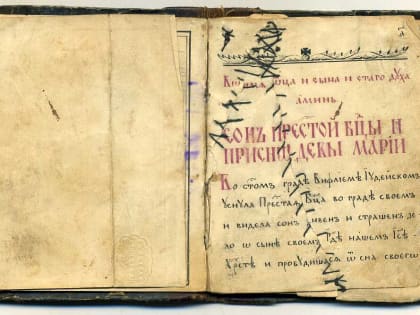 Во имѧ ѿца и сына и стаго дꙋха
аминь
сонъ престой бцы и
приснѡ девы марїи
Во стом граде Вифлиеме Іудейском
Уснула Престаѧ Бца во граде своем
и видела сон дивен и страшен зе
ло ѡ сыне своем Где нашем Їсе
Хрсте и пробудишасѧ ѿ сна своегѡ